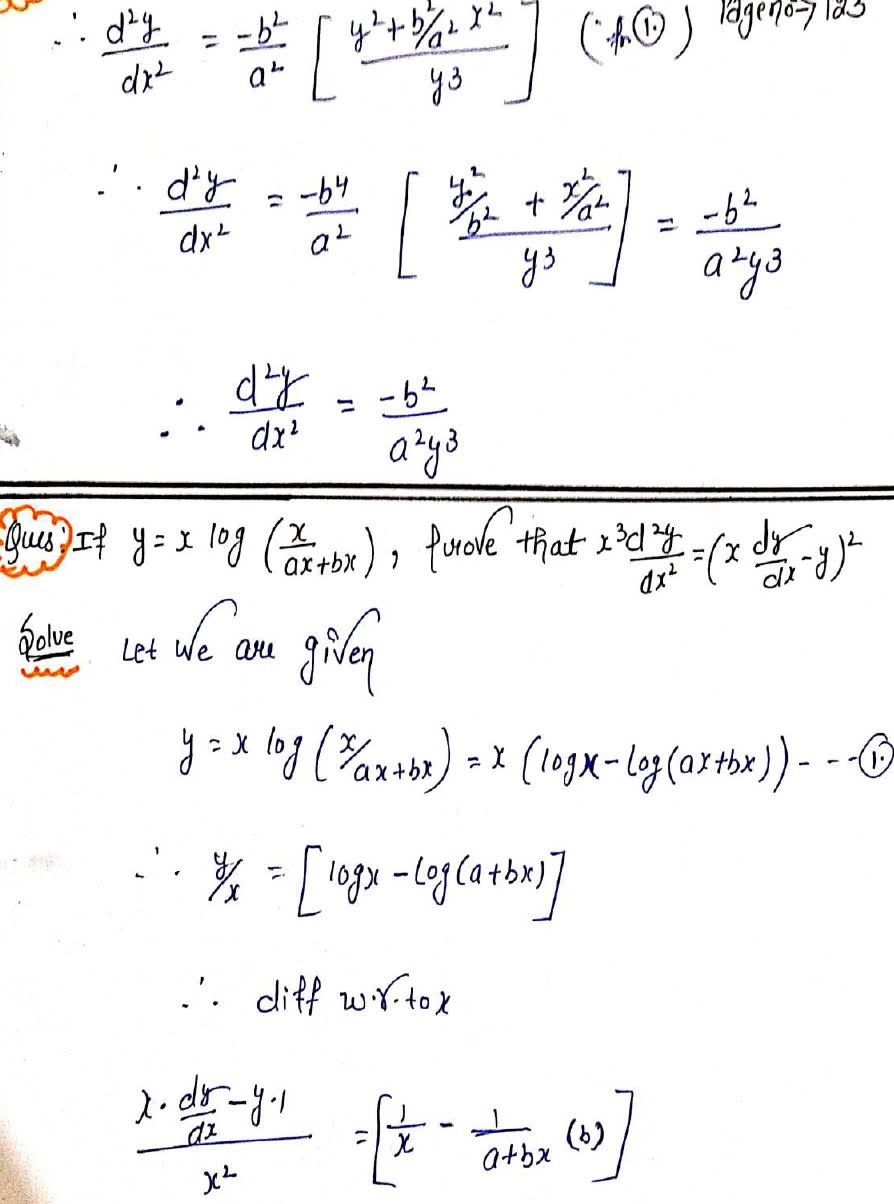 ∴ d²y/dx² = -b²/a² [ (y² + b²/a² x²)/y³ ] (∵ fn ①) Page no → 123
∴ d²y/dx² = -b⁴/a² [ (y²/b² + x²/a²)/y³ ] = -b²/a²y³
∴ d²y/dx² = -b²/a²y³
Ques: If y = x log (x/ax+bx), prove that x³ d²y/dx² = (x dy/dx - y)²
Solve Let We are given
y = x log (x/ax+bx) = x (logx - log(ax+bx)) - - - ①
∴ y/x = [logx - log(a+bx)]
∴ diff w.r.to x
(x. dy/dx - y.1)/x² = [1/x - 1/a+bx (b)]